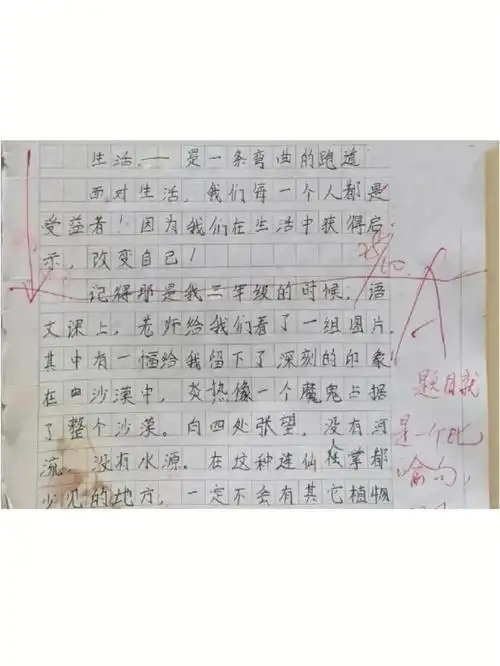 生活,——是一条弯曲的跑道
面对生活,我们每一个人都是
受益者!因为我们在生活中获得启
示,改变自己!
记得那是我三年级的时候,语
文课上,老师给我们看了一组图片,
其中有一幅给我留下了深刻的印象
在沙漠中,炎热像一个魔鬼占据
了整个沙漠。向四处张望,没有河
流,没有水源。在这种连仙人掌都
少见的地方,一定不会有其它植物
A
题目我
是一个比
喻句,